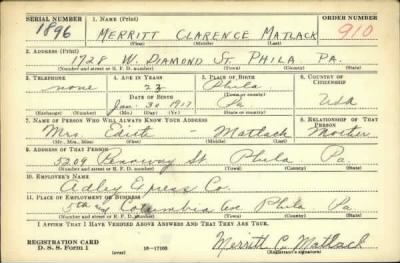 SERIAL NUMBER 1. NAME (Print) ORDER NUMBER
1896 MERRITT CLARENCE MATLACK 910
(First) (Middle) (Last)
2. ADDRESS (Print)
1728 W. DIAMOND ST. PHILA PA.
(Number and street or R. F. D. number) (Town) (County) (State)
3. TELEPHONE 4. AGE IN YEARS 5. PLACE OF BIRTH 6. COUNTRY OF CITIZENSHIP
none 23 Phila
DATE OF BIRTH (Town or county)
Jan. 30 1917 Pa USA
(Exchange) (Number) (Mo.) (Day) (Yr.) (State or country)
7. NAME OF PERSON WHO WILL ALWAYS KNOW YOUR ADDRESS 8. RELATIONSHIP OF THAT PERSON
Mrs. Edith - Matlack Mother
(Mr., Mrs., Miss) (First) (Middle) (Last)
9. ADDRESS OF THAT PERSON
5209 St Phila Pa
(Number and street or R. F. D. number) (Town) (County) (State)
10. EMPLOYER'S NAME
Adley Express Co.
11. PLACE OF EMPLOYMENT OR BUSINESS
5th and Columbia Ave Phila Pa
(Number and street or R. F. D. number) (Town) (County) (State)
I AFFIRM THAT I HAVE VERIFIED ABOVE ANSWERS AND THAT THEY ARE TRUE.
REGISTRATION CARD
D. S. S. Form 1 (over) 16-17105 Merritt C. Matlack
(Registrant's signature)